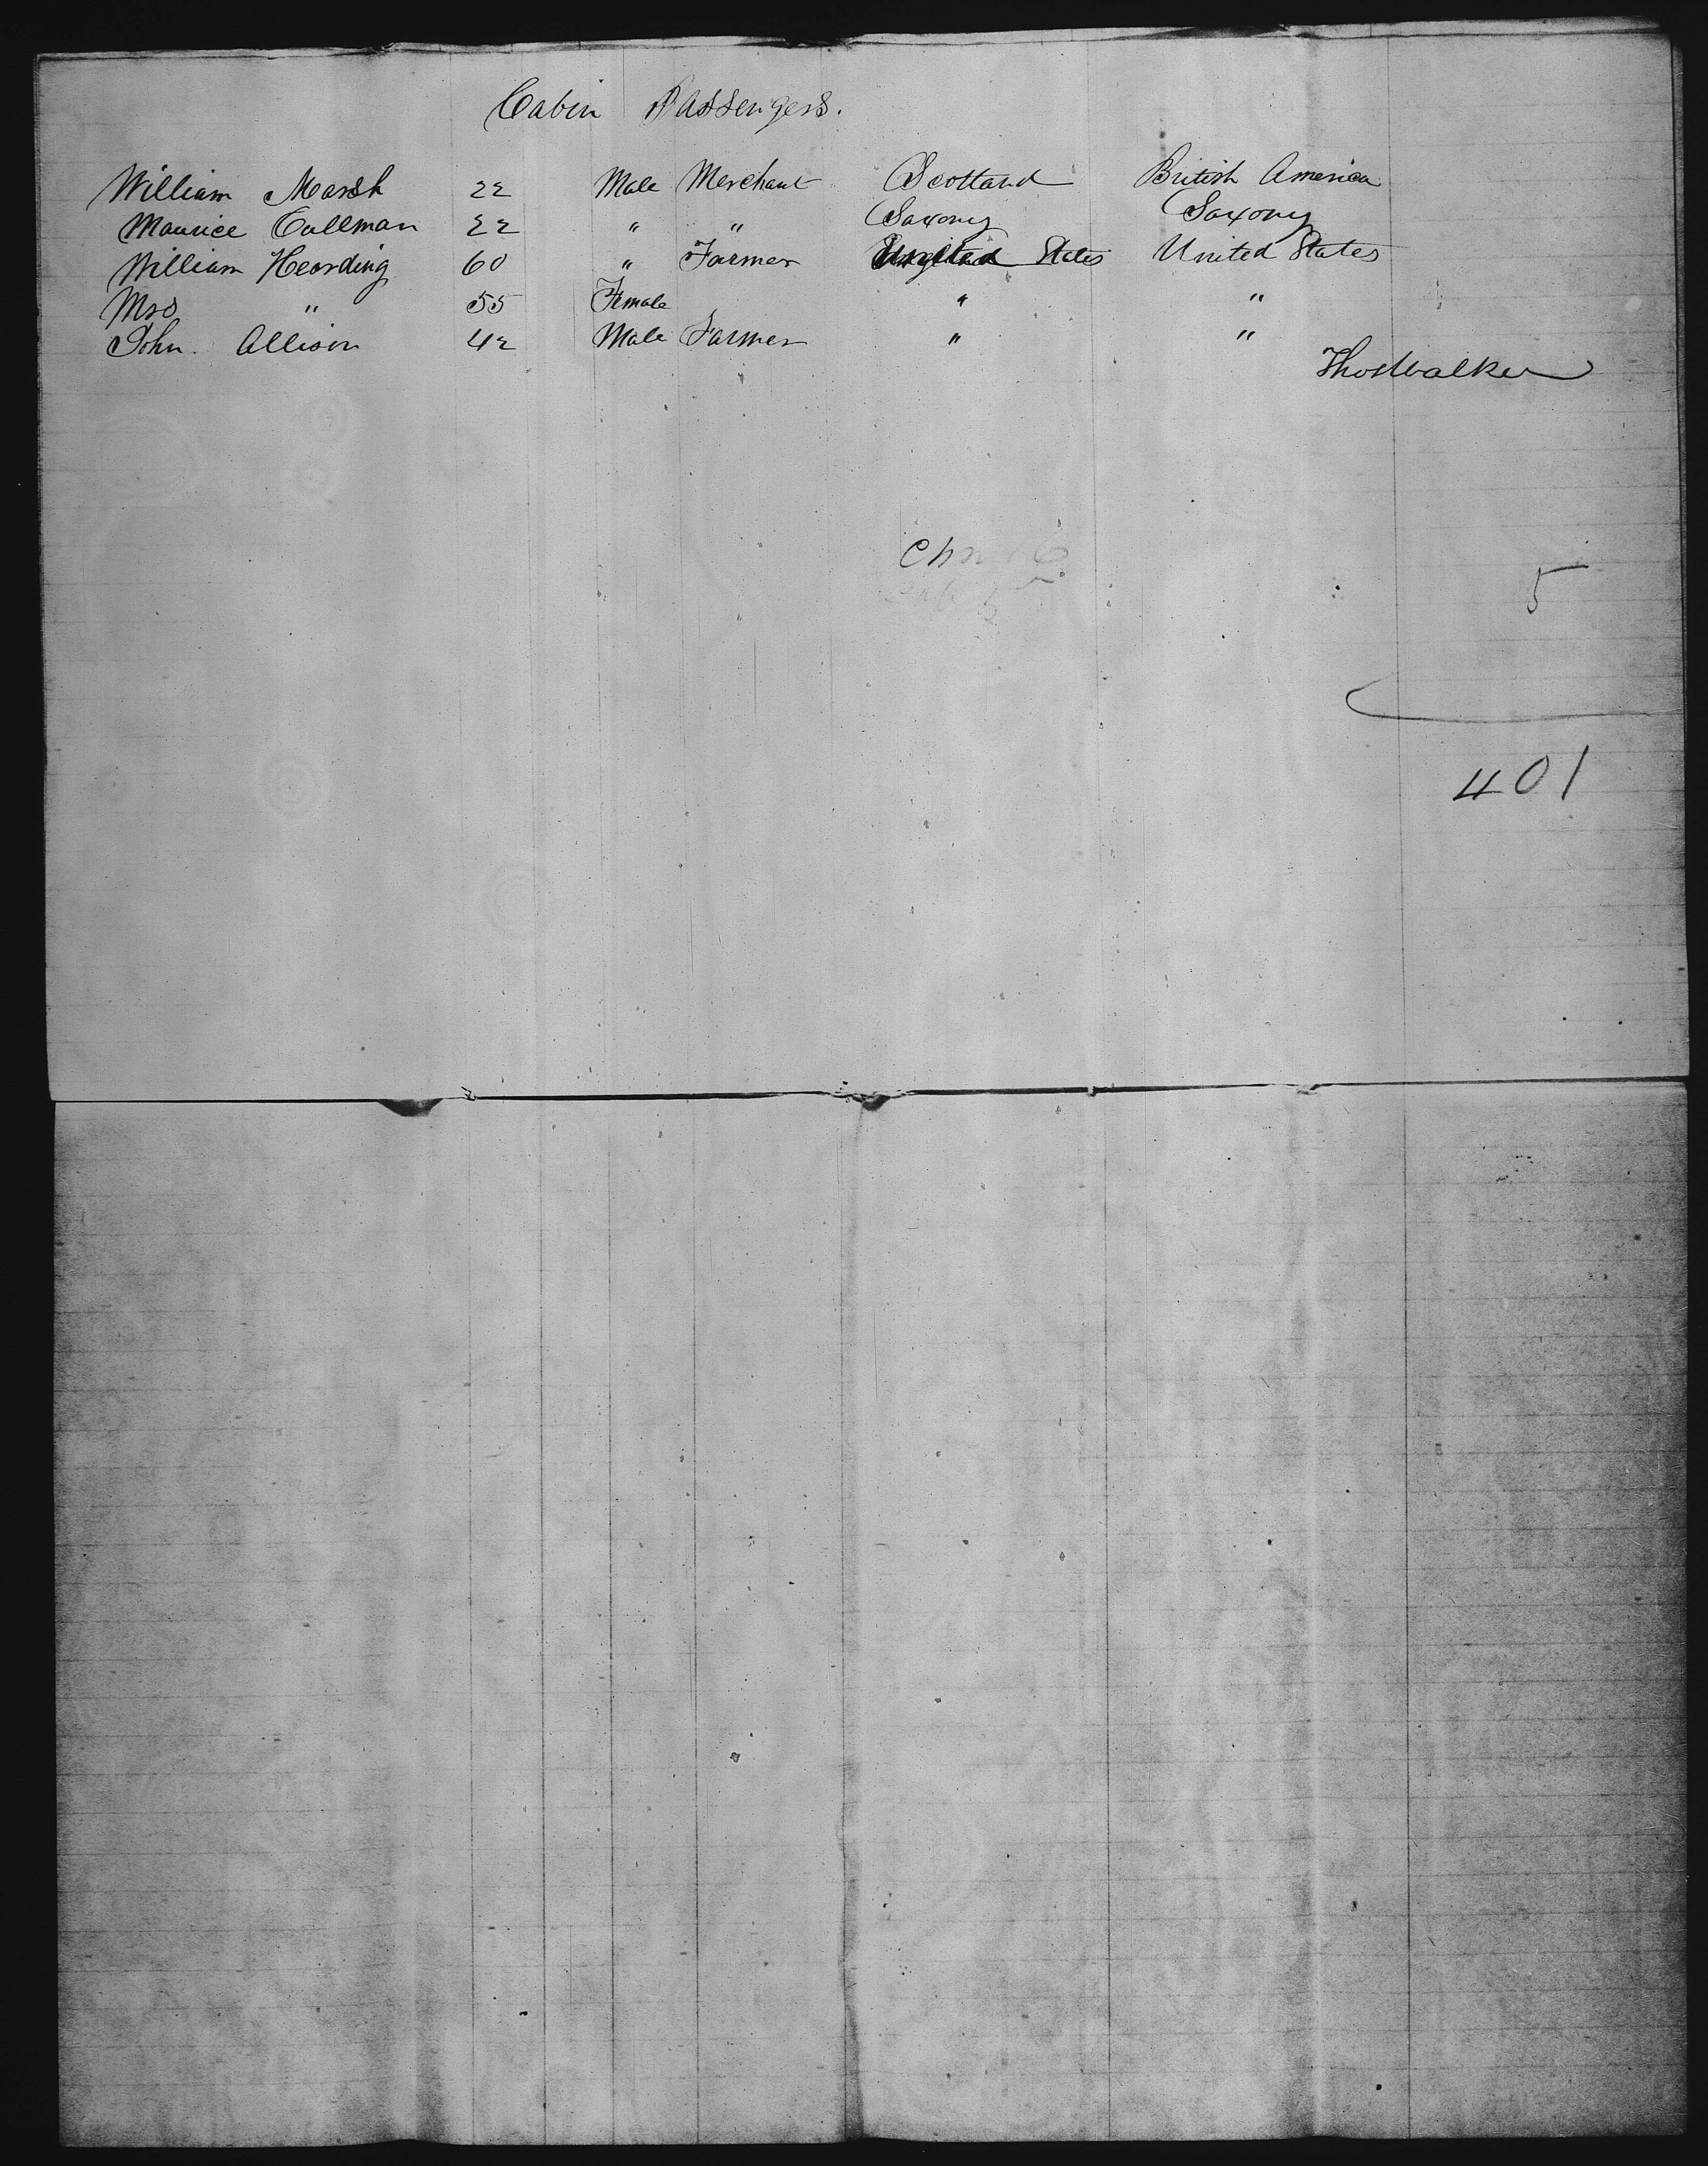 Cabin Passengers.
William Marsh 22 Male Merchant Scotland British America
Maurice Collman 22 " " Saxony Saxony
William Hearding 60 " Farmer United States United States
Mrs " 55 Female " "
John Allison 42 Male Farmer " "
Thos Walker
5
401